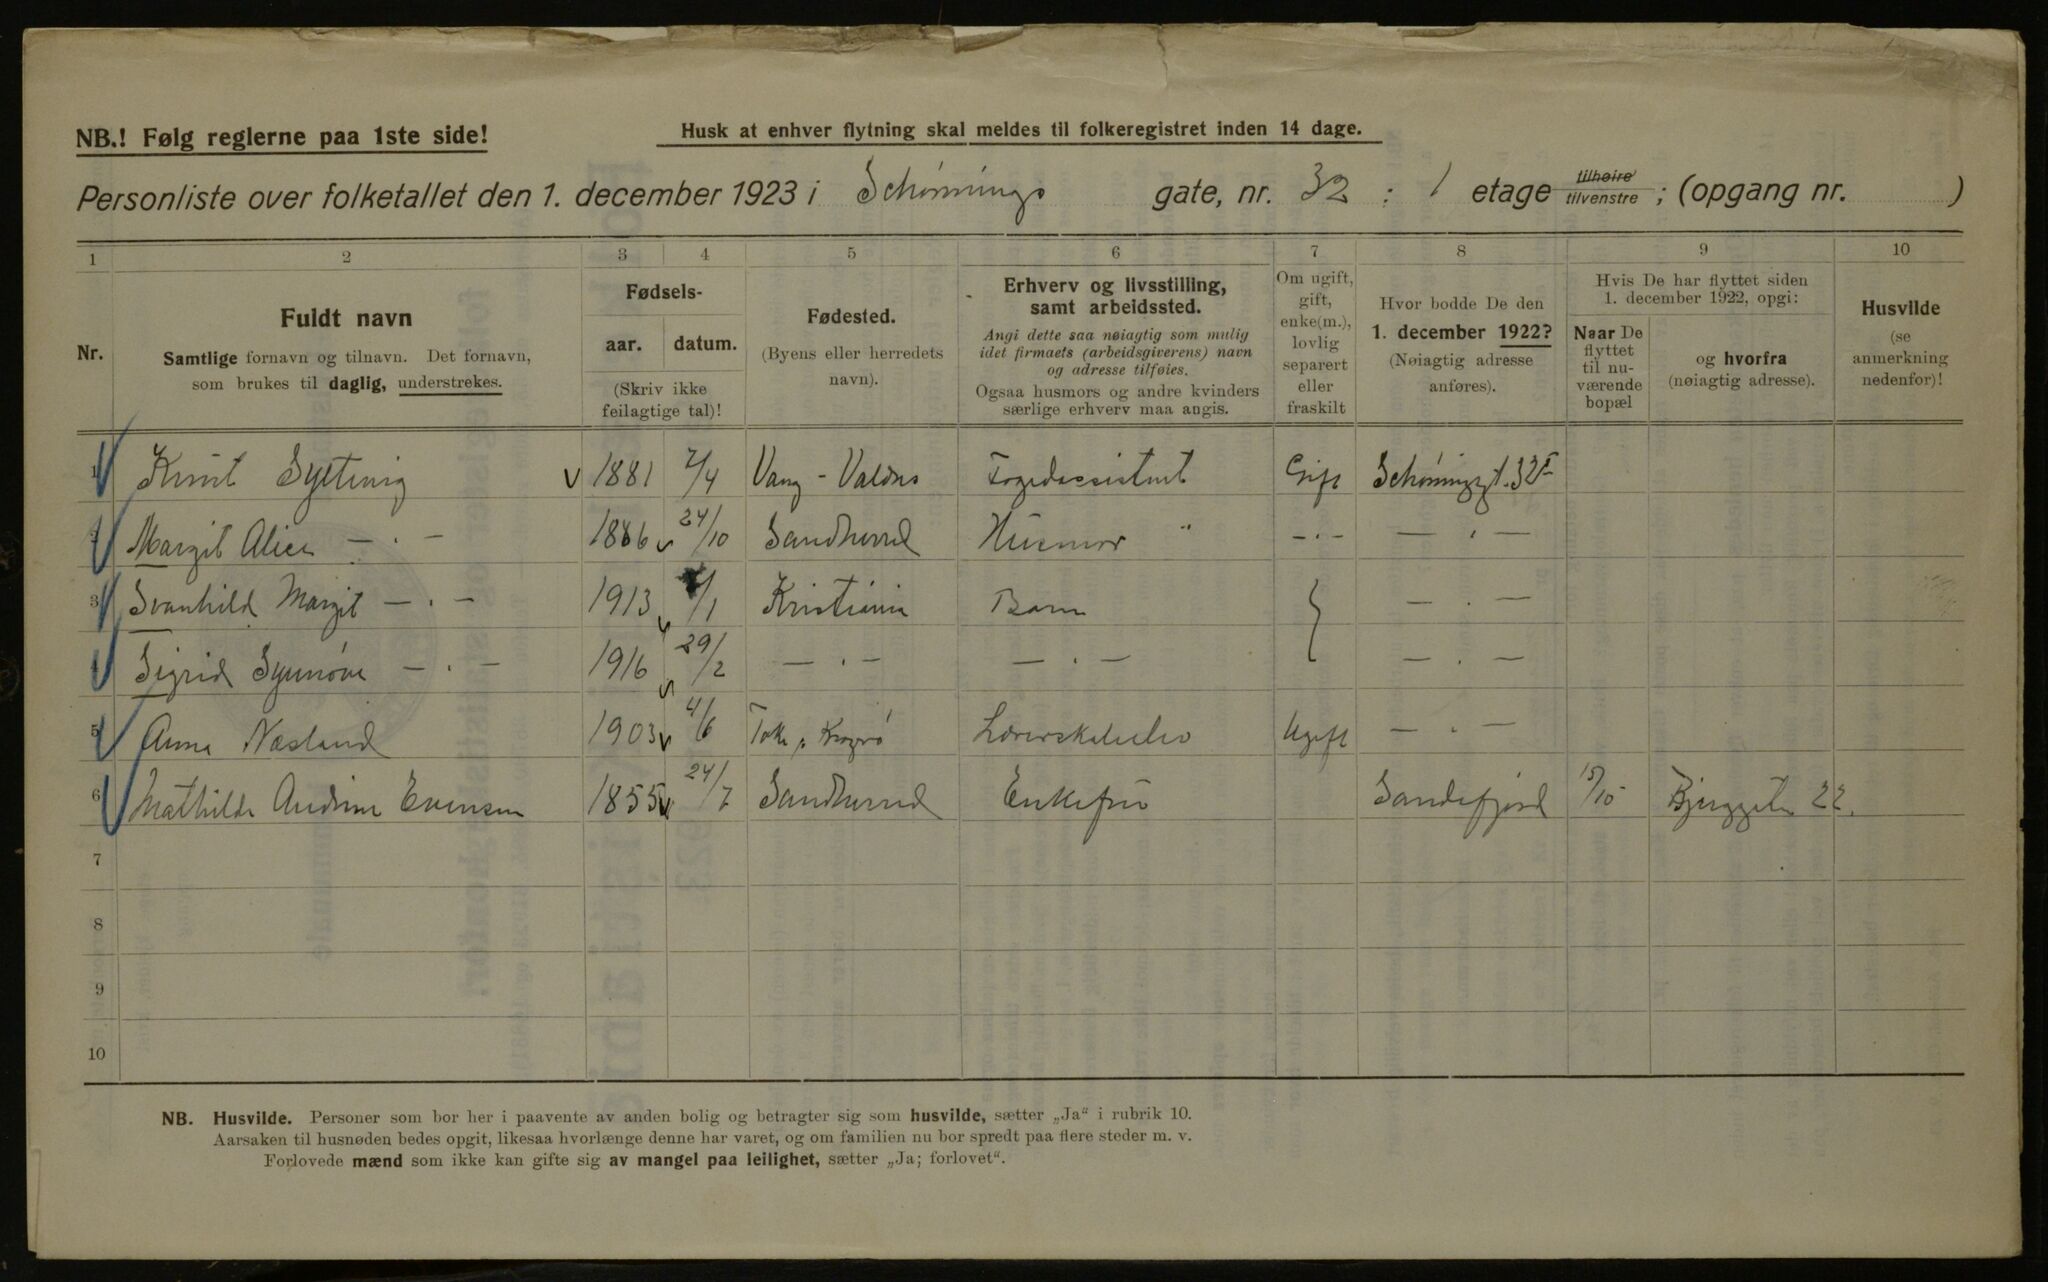 NB.! Følg reglerne paa 1ste side!
Husk at enhver flytning skal meldes til folkeregistret inden 14 dage.
Personliste over folketallet den 1. december 1923 i Schønnings gate, nr. 32 : 1 etage tilhøire tilvenstre ; (opgang nr. )
1 2 3 4 5 6 7 8 9 10
Nr.
Fuldt navn
Samtlige fornavn og tilnavn. Det fornavn,
som brukes til daglig, understrekes.
Fødsels-
aar. datum.
(Skriv ikke
feilagtige tal)!
Fødested.
(Byens eller herredets
navn).
Erhverv og livsstilling,
samt arbeidssted.
Angi dette saa nøiagtig som mulig
idet firmaets (arbeidsgiverens) navn
og adresse tilføies.
Ogsaa husmors og andre kvinders
særlige erhverv maa angis.
Om ugift,
gift,
enke(m.),
lovlig
separert
eller
fraskilt
Hvor bodde De den
1. december 1922?
(Nøiagtig adresse
anføres).
Hvis De har flyttet siden
1. december 1922, opgi:
Naar De
flyttet
til nu-
værende
bopæl
og hvorfra
(nøiagtig adresse).
Husvilde
(se
anmerkning
nedenfor)!
1 Knut 1881 7/4 Vang - Valdres Gift
2 Margit Alice — " — 1886 24/10 Sandherred Husmor " — " — — " —
3 Svanhild Margit — " — 1913 /1 Kristiania Barn — " —
4 Sigrid Synnøve — " — 1916 29/2 — " — — " — — " —
5 Anna Næsland 1903 4/6 Ugift — " —
6 Mathilde Andrine Evensen 1855 24/7 Sandherred Enkefru Sandefjord 15/10 Bjerggaten 22.
7
8
9
10
NB. Husvilde. Personer som bor her i paavente av anden bolig og betragter sig som husvilde, sætter „Ja“ i rubrik 10.
Aarsaken til husnøden bedes opgit, likesaa hvorlænge denne har varet, og om familien nu bor spredt paa flere steder m. v.
Forlovede mænd som ikke kan gifte sig av mangel paa leilighet, sætter „Ja; forlovet“.